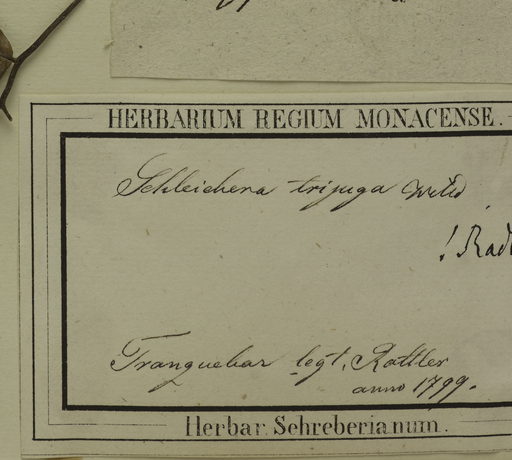 HERBARIUM REGIUM MONACENSE.
Schleichera trijuga Willd
! Radl
Tranquebar legt. Rottler
anno 1799.
Herbar. Schreberianum.